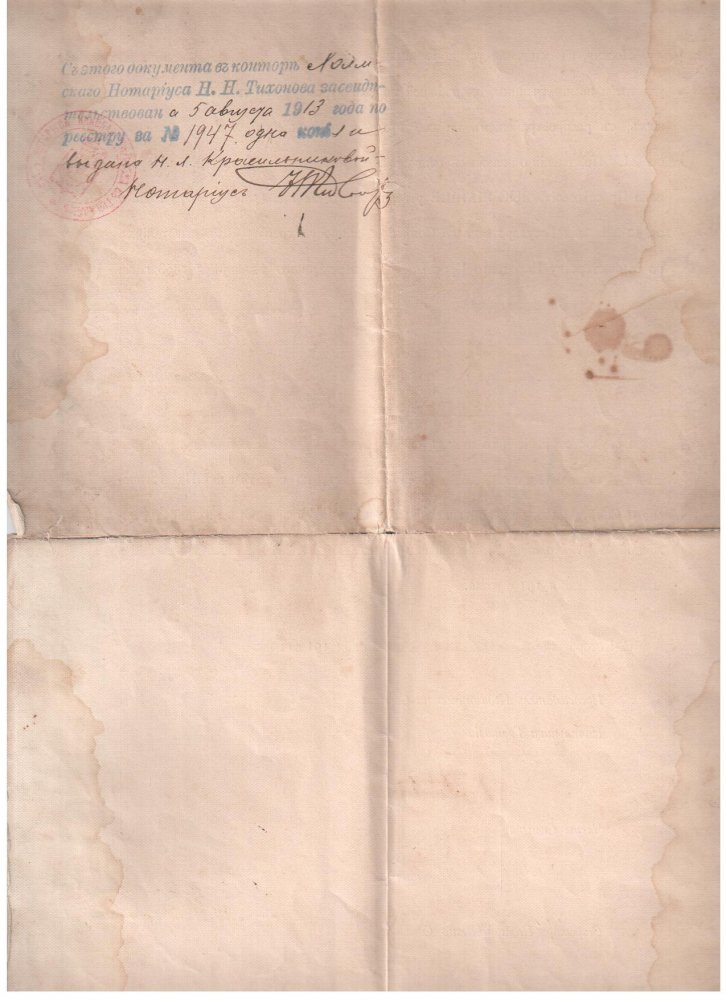 Съ этого документа въ конторѣ Холм-
скаго Нотаріуса Н. Н. Тихонова засвидѣ-
тельствован а 5 августа 1913 года по
реестру за № 1947 одна копія и
выдана Н. Л. Красильниковой
Нотаріусъ